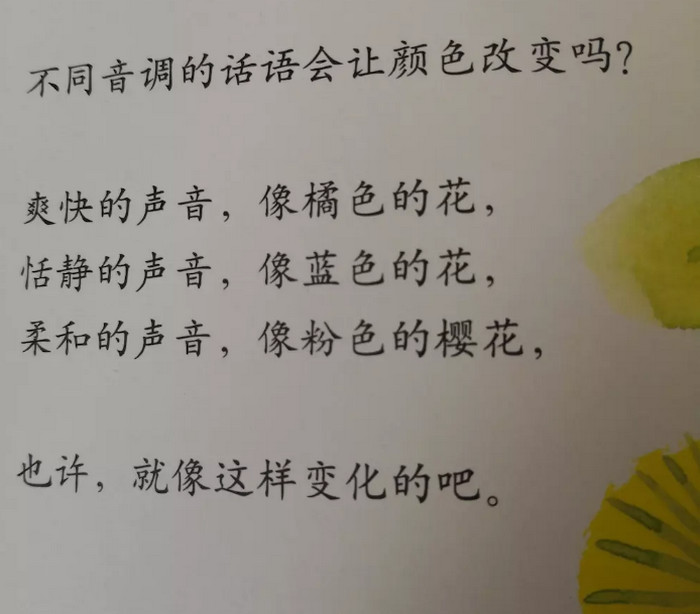 不同音调的话语会让颜色改变吗?
爽快的声音，像橘色的花，
恬静的声音，像蓝色的花，
柔和的声音，像粉色的樱花，
也许，就像这样变化的吧。